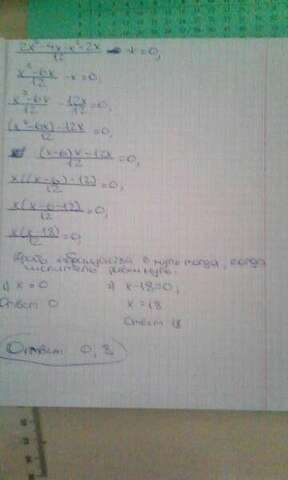 2x²-4x-x²-2x/12 - x=0,
x²-6x/12 -x=0,
x²-6x/12 - 12x/12=0,
(x²-6x)-12x/12 =0,
(x-6)x-12x/12 =0,
x((x-6)-12)/12 =0,
x(x-6-12)/12 =0,
x(x-18)/12 =0,
дробь обращается в нуль тогда, когда
числитель равен нулю.
1) x=0 2) x-18=0,
Ответ 0 x=18
Ответ 18
Ответ 0, 8